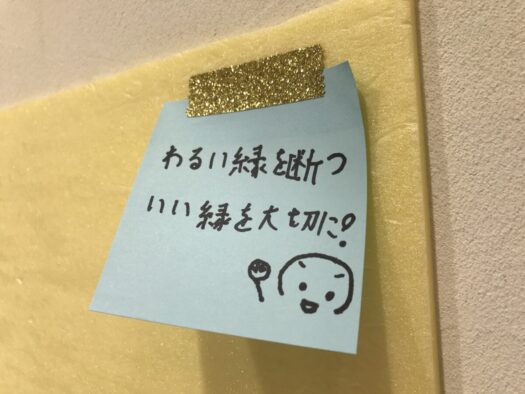 わるい縁を断つ
いい縁を大切に!